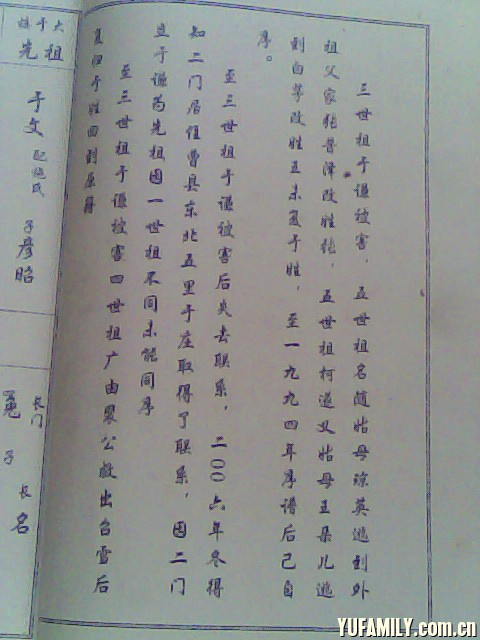 三世祖于谦被害，五世祖名随姑母琼英逃到外
祖父家张普泽改胜张，五世祖柯道又姑母王朵儿逃
到白茅改胜王未复于胜，至一九九四年序谱后己自
序。
至三世祖于谦被害后失去联系，二00六年冬得
知二门居住曹县东北五里于庄取得了联系，因二门
且于谦为先祖因一世祖不同未能同序
至三世祖于谦被害四世祖广由众公救出台雪后
复归于胜回到原籍
祖先
于文 配施氏 子彦昭
长门 冕 子 长 名
YUFAMILY.com.cn